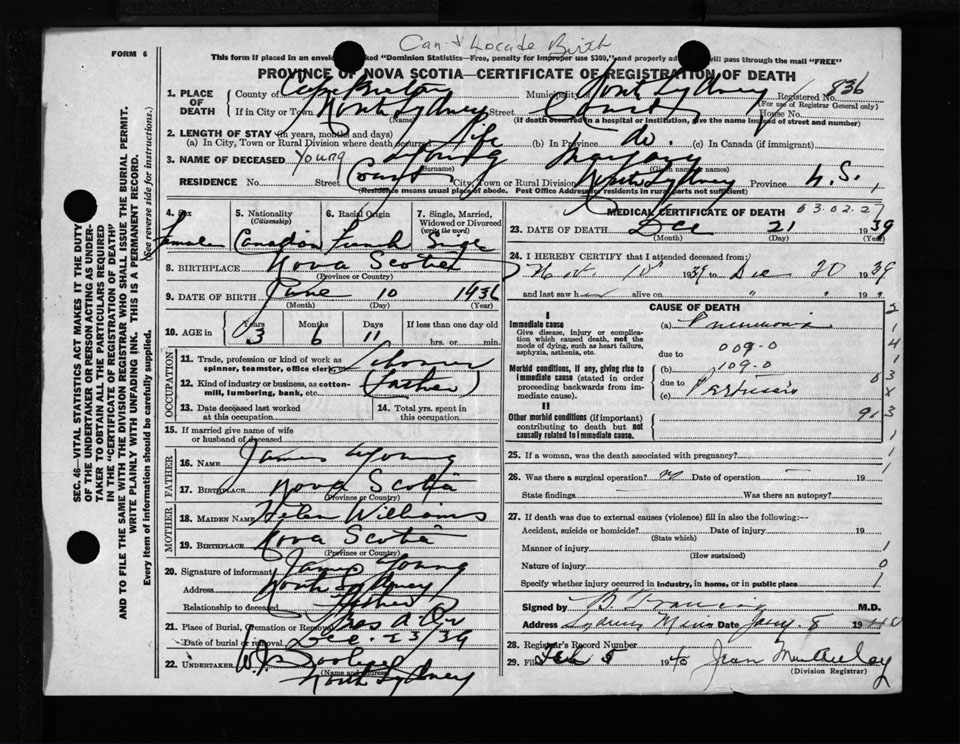 FORM 6
Can't Locate Birth
This form if placed in an envelope marked "Dominion Statistics—Free, penalty for improper use $300," and properly addressed will pass through the mail "FREE"
PROVINCE OF NOVA SCOTIA—CERTIFICATE OF REGISTRATION OF DEATH
1. PLACE OF DEATH County of Cape Breton Municipality North Sydney Registered No. 836
(For use of Registrar General only)
If in City or Town North Sydney Street House No.
(Name) (If death occurred in a hospital or institution, give the name instead of street and number)
2. LENGTH OF STAY (in years, months and days)
(a) In City, Town or Rural Division where death occurred Life (b) In Province do. (c) In Canada (if immigrant)
3. NAME OF DECEASED Young Young Margary
(Surname) (Given name or names)
RESIDENCE No. Street Court City, Town or Rural Division North Sydney Province N.S.
(Residence means usual place of abode. Post Office Address for residents in rural parts not sufficient)
4. Sex Female
5. Nationality (Citizenship) Canadian
6. Racial Origin French
7. Single, Married, Widowed or Divorced (write the word) Single
8. BIRTHPLACE Nova Scotia
(Province or Country)
9. DATE OF BIRTH June 10 1936
(Month) (Day) (Year)
10. AGE in Years Months Days If less than one day old
3 6 11 hrs. or min.
OCCUPATION
11. Trade, profession or kind of work as spinner, teamster, office clerk, etc.
12. Kind of industry or business, as cotton-mill, lumbering, bank, etc. (Father)
13. Date deceased last worked at this occupation
14. Total yrs. spent in this occupation
15. If married give name of wife or husband of deceased
FATHER
16. NAME James Young
17. BIRTHPLACE Nova Scotia
(Province or Country)
MOTHER
18. MAIDEN NAME Helen Williams
19. BIRTHPLACE Nova Scotia
(Province or Country)
20. Signature of informant James Young
Address North Sydney
Relationship to deceased Father
21. Place of Burial, Cremation or Removal
Date of burial or removal Dec. 23/39
22. UNDERTAKER W.J. Dooley
(Name and address)
North Sydney
MEDICAL CERTIFICATE OF DEATH 03.02.27
23. DATE OF DEATH Dec 21 1939
(Month) (Day) (Year)
24. I HEREBY CERTIFY that I attended deceased from:
Nov 18 1939 to Dec 20 1939
and last saw h alive on " " 19 "
CAUSE OF DEATH
I
Immediate cause
Give disease, injury or complication which caused death, not the mode of dying, such as heart failure, asphyxia, asthenia, etc.
(a) Pneumonia
due to 009.0
Morbid conditions, if any, giving rise to immediate cause (stated in order proceeding backwards from immediate cause).
(b) 109.0
due to Pertussis
(c)
II
Other morbid conditions (if important) contributing to death but not causally related to immediate cause.
913
25. If a woman, was the death associated with pregnancy?
26. Was there a surgical operation? no Date of operation 19
State findings Was there an autopsy?
27. If death was due to external causes (violence) fill in also the following:—
Accident, suicide or homicide? Date of injury 19
(State which)
Manner of injury 1
(How sustained)
Nature of injury 0
Specify whether injury occurred in industry, in home, or in public place 1
Signed by B. Francis M.D.
Address Sydney Mines Date Jany. 8 1940
28. Registrar's Record Number
29. Filed Feb 5 1940
(Division Registrar)
SEC. 46—VITAL STATISTICS ACT MAKES IT THE DUTY
OF THE UNDERTAKER OR PERSON ACTING AS UNDER-
TAKER TO OBTAIN ALL THE PARTICULARS REQUIRED
IN THE "CERTIFICATE OF REGISTRATION OF DEATH"
AND TO FILE THE SAME WITH THE DIVISION REGISTRAR WHO SHALL ISSUE THE BURIAL PERMIT.
WRITE PLAINLY WITH UNFADING INK. THIS IS A PERMANENT RECORD.
Every item of information should be carefully supplied. (See reverse side for instructions.)